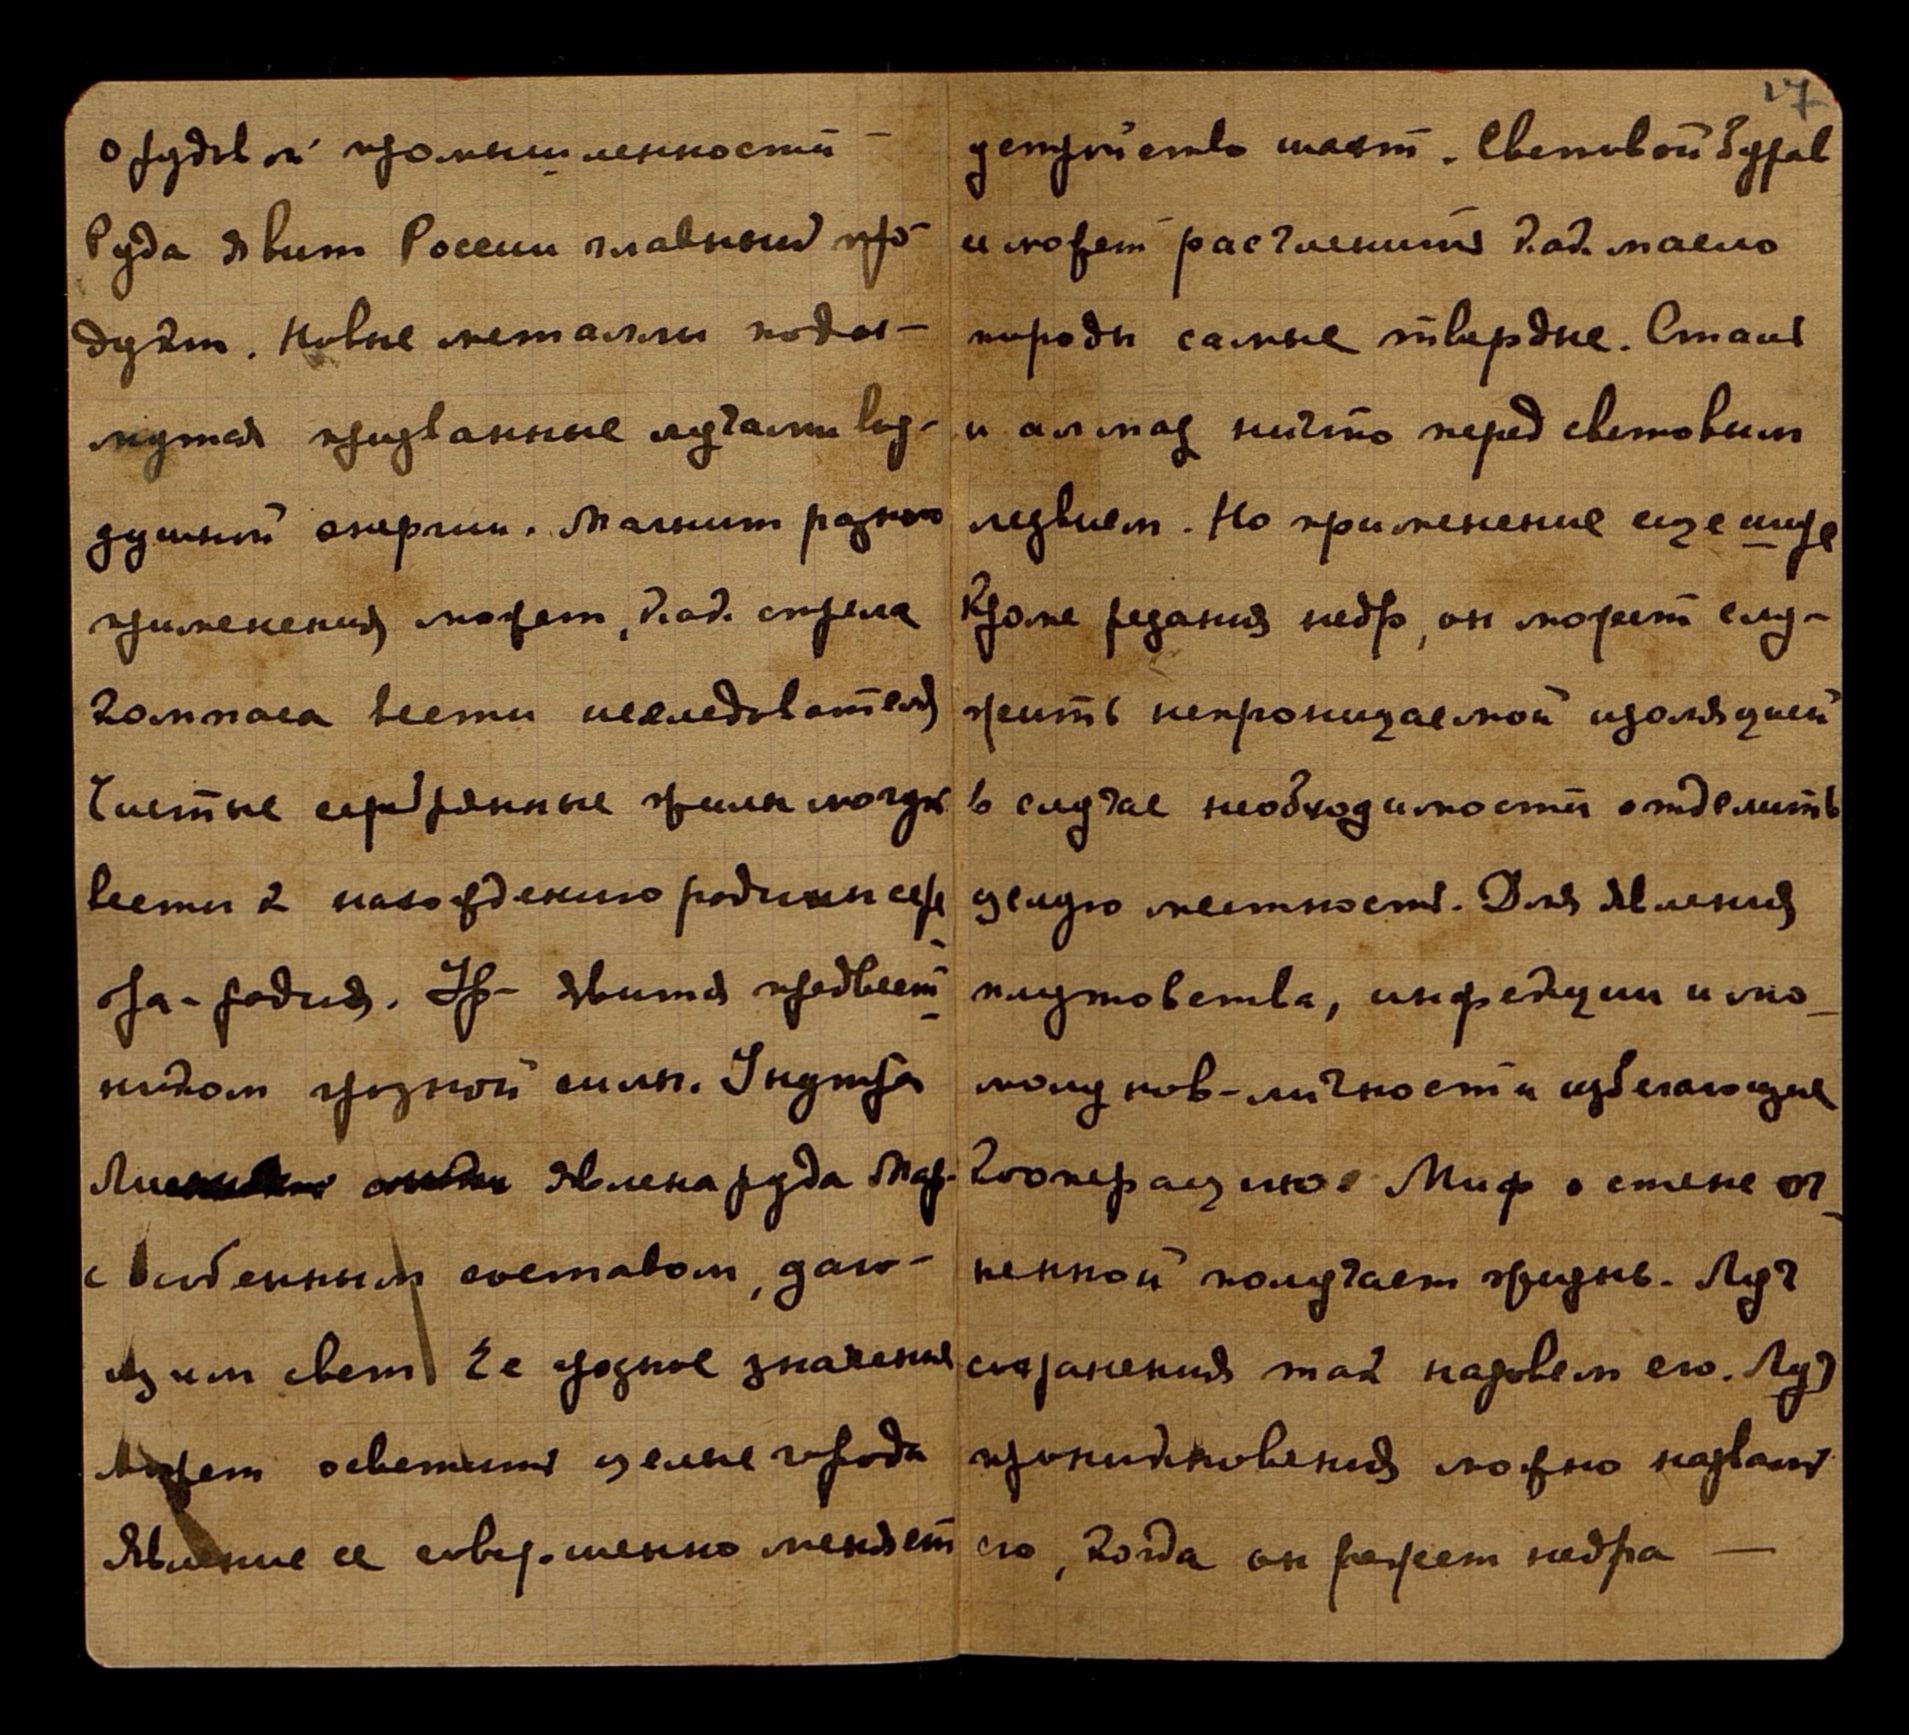 о рудовой промышленности —
Руда явит России главный про-
дукт. Новые металлы поды-
мутся призванные лучами воз-
душной энергии. Магнит разного
применения может, как стрела
компаса вести исследователя
Чистые серебрянные жилы могут
вести к нахождению родины сере
бра-радия. явится предвест-
ником грозной силы. Изнутра
явлена руда Мор.
с особенным составом, даю-
щим свет Ее грозное значение
может осветить целые города
Явление ее совершенно меняет
17
устройство шахт. Световой бурав
и может расчленить как масло
породы самые твердые. Сталь
и алмаз ничто перед световым
лезвием. Но применение еще шире
Кроме резания недр, он может слу-
жить непроницаемой изоляцией
в случае необходимости отделить
целую местность. Для явления
плутовства, инфекции и мо-
лчунов-личности избегающие
Кооперацию. Миф о стене ог-
ненной получает жизнь. Луч
сохранения так назовем его. Луч
проникновения можно назвать
его, когда он режет недра —